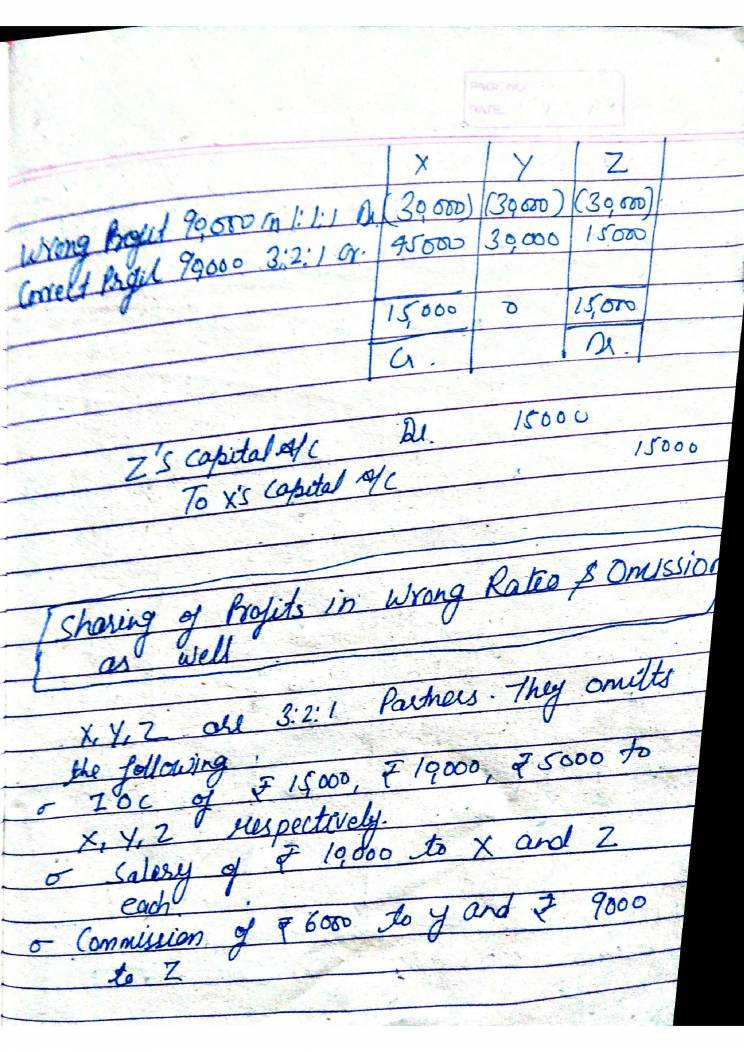 PAGE NO.
DATE / /
X Y Z
Wrong Profit 90,000 in 1:1:1 Dr. (30,000) (30,000) (30,000)
Correct Profit 90,000 3:2:1 Cr. 45000 30,000 15000
15,000 0 15,000
Cr. Dr.
Z's Capital A/c Dr. 15000
To X's Capital A/c 15000
Sharing of Profits in Wrong Ratio & Omission
as well
X, Y, Z are 3:2:1 Partners. They omitts
the following:
IOC of ₹ 15,000, ₹ 10,000, ₹ 5000 to
X, Y, Z respectively.
Salary of ₹ 10,000 to X and Z
each.
Commission of ₹ 6000 to Y and ₹ 9000
to Z